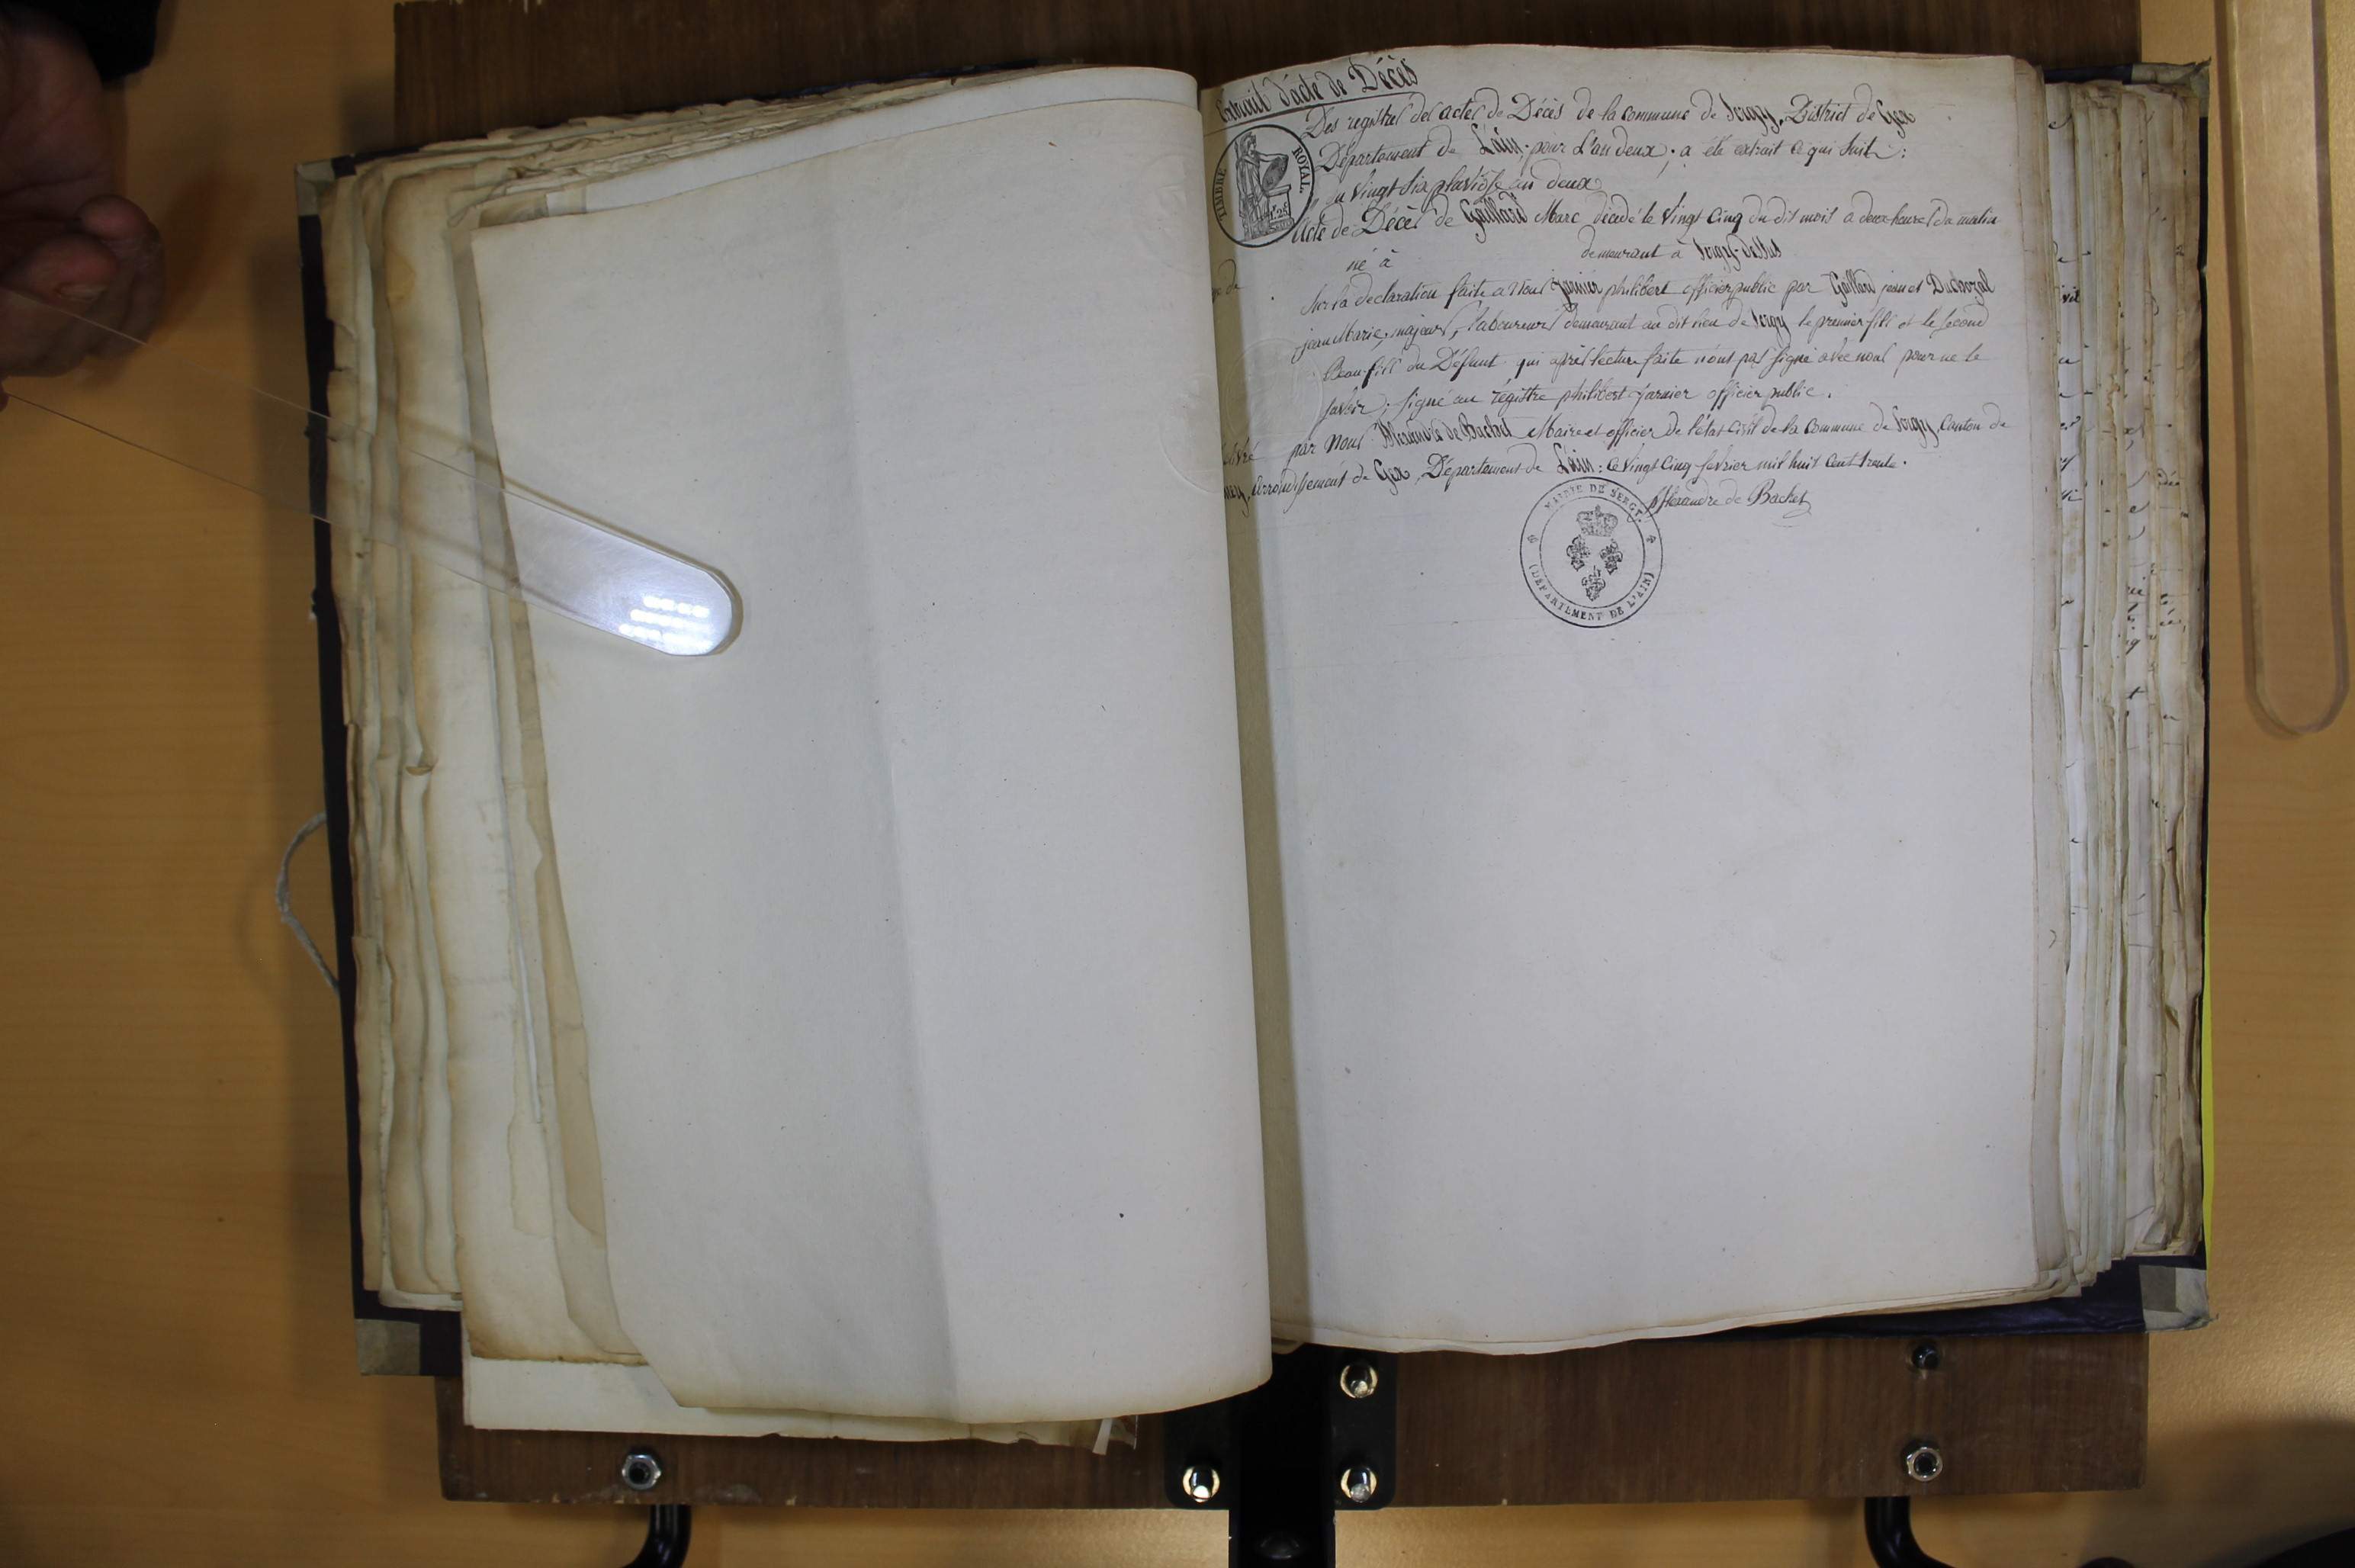 Extrait d'acte de Décès
Des registres des actes de Décès de la commune de Sergy, District de Gex
Département de L'ain, pour L'an deux; a été extrait ce qui suit:
TIMBRE ROYAL
1f. 25c
du vingt six pluviôse an deux
Acte de Décès de Gaillard Marc décédé le vingt cinq du dit mois a deux heures du matin
né à demeurant à Sergy-dessus
Sur la declaration faite a nous philibert officier public par Gaillard jean et
jean Marie, majeurs, laboureurs demeurant au dit lieu de Sergy le premier fils et le second
Beau-fils du Défunt qui après lecture faite n'ont pas signé avec nous pour ne le
savoir; signé au registre philibert officier public.
par Nous Alexandre de Bachet Maire et officier de l'état civil de la commune de Sergy, Canton de
arrondissement de Gex, Département de L'ain: ce vingt cinq fevrier mil huit cent trente.
Alexandre de Bachet
MAIRIE DE SERGY
(DÉPARTEMENT DE L'AIN)